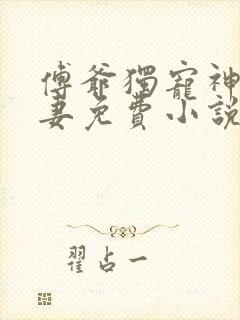 傅爺獨寵神
妻免費小說
翟占一